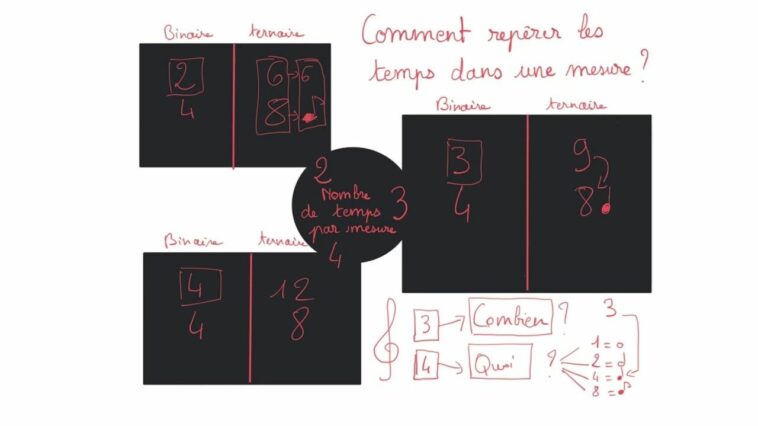 Comment repérer les
temps dans une mesure ?
Binaire ternaire
2 6 → 6
4 8 → ♪
Binaire ternaire
3 9
4 8
2
Nombre
de temps 3
par mesure
4
Binaire ternaire
4 12
4 8
3 → Combien ? 3
4 → Quoi ?
1 = 𝅝
2 = 𝅗𝅥
4 = ♩
8 = ♪